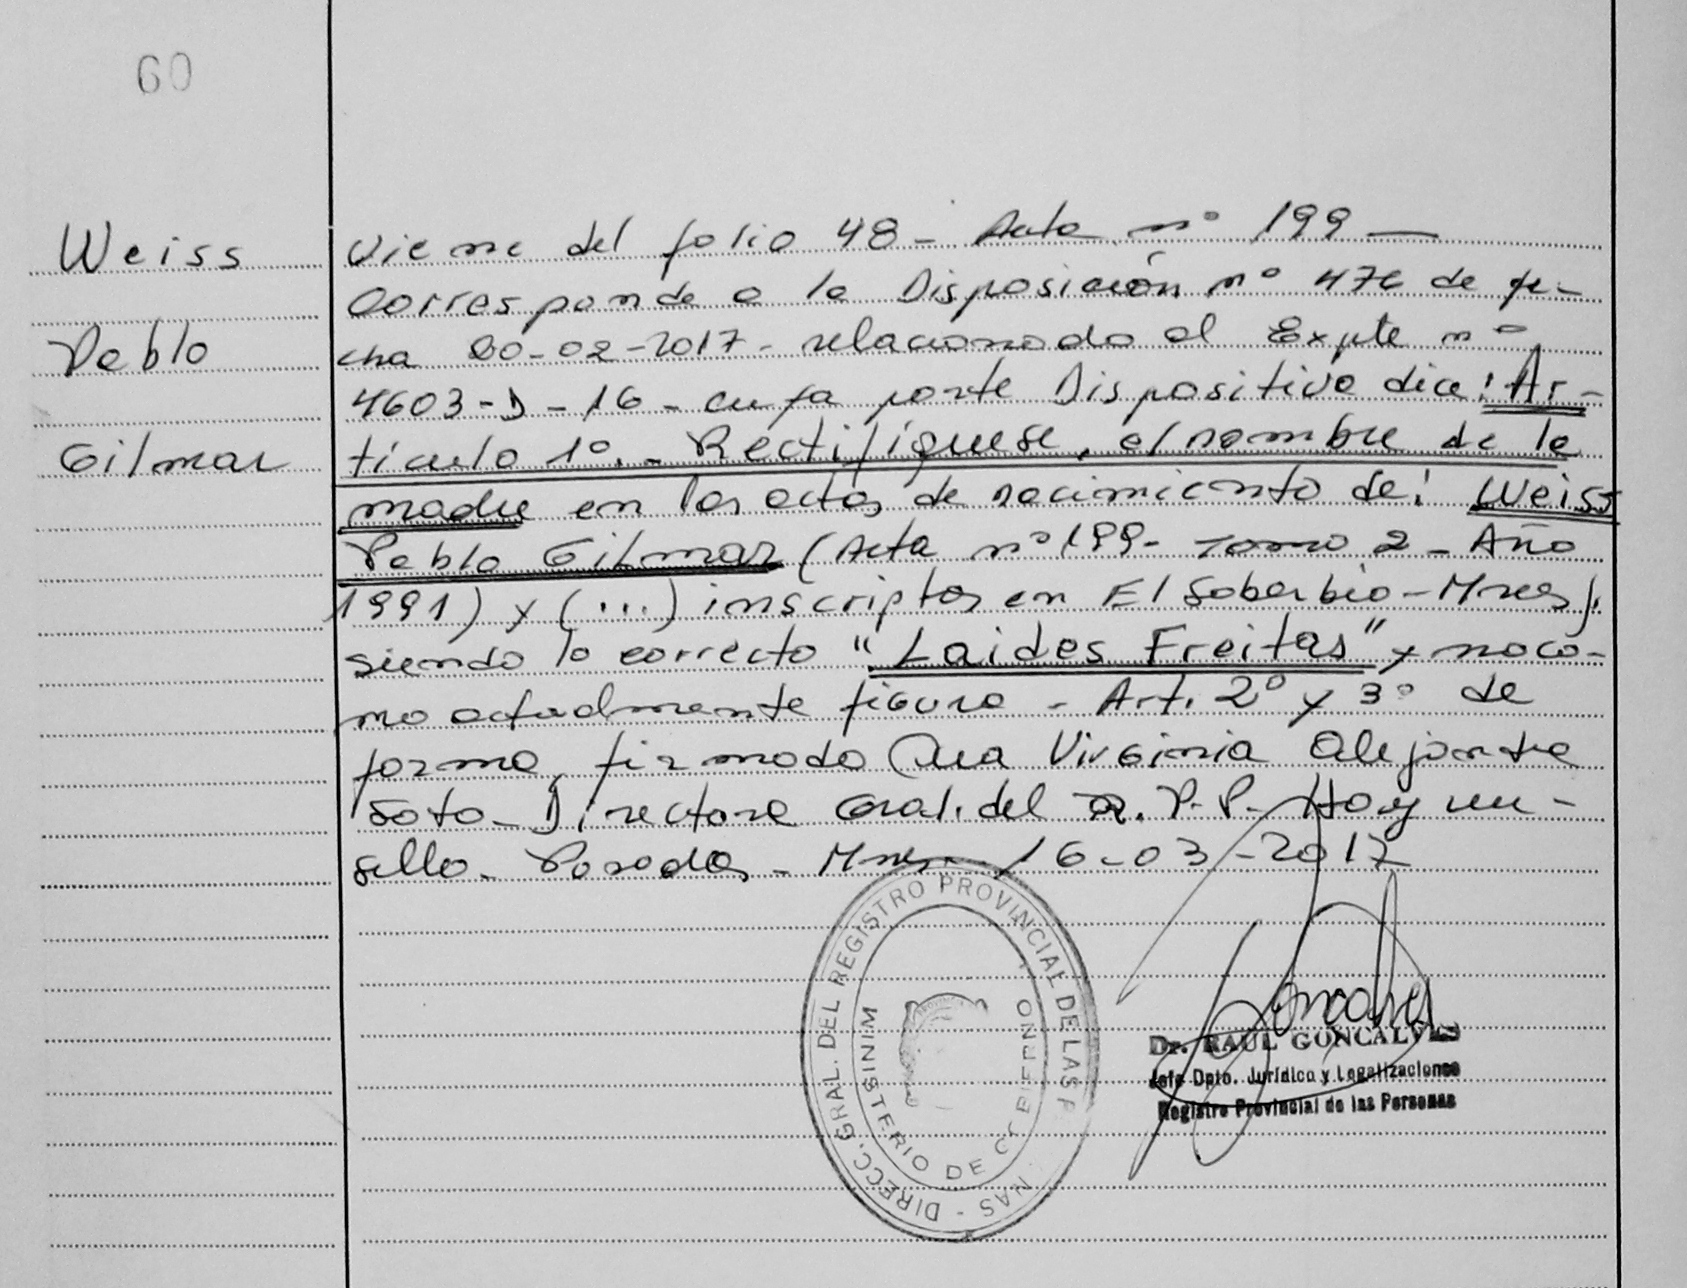 60
Weiss
Pablo
Gilmar
Viene del folio 48 - Acta nº 199 —
Corresponde a la Disposición nº 476 de fe-
cha 20-02-2017 - relacionado al Expte nº
4603-D-16 - cuya parte Dispositiva dice: Ar-
tículo 1º.- Rectifíquese, el nombre de la
madre en las actas de nacimiento de: Weiss
Pablo Gilmar (Acta nº 199 - Tomo 2 - Año
1991) y (...) inscriptos en El Soberbio - Mnes),
siendo lo correcto "Laides Freitas" y no co-
mo actualmente figura - Art. 2º y 3º de
forma, firmado Virginia Alejandra
Soto - Directora Gral. del R.P.P. Hay un
sello - Posadas - Mnes - 16-03-2017
DIRECC. GRAL. DEL REGISTRO PROVINCIAL DE LAS P NAS -
MINISTERIO DE G BIERNO
PROVINCIA
Dr. RAUL GONCALVES
Jefe Dpto. Jurídico y Legalizaciones
Registro Provincial de las Personas